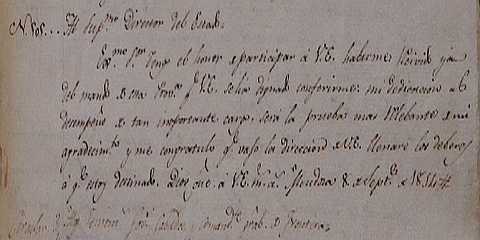 Al Sup.mo Director del Estado.
Ex.mo Sor Tengo el honor de participar á V.E. haberme recivido ya
del mando de esta Prov.a q.e V.E. se ha dignado conferirme: mi dedicacion al
desempeño de tan importante cargo, será la prueba mas relebante de mi
agradecim.to y me congratulo q.e vajo la direccion de V.E. llenaré los deberes
á q.e estoy destinado. Dios gue. á V.E. m.s a.s Mendoza 8 de Sept.e de 1814.